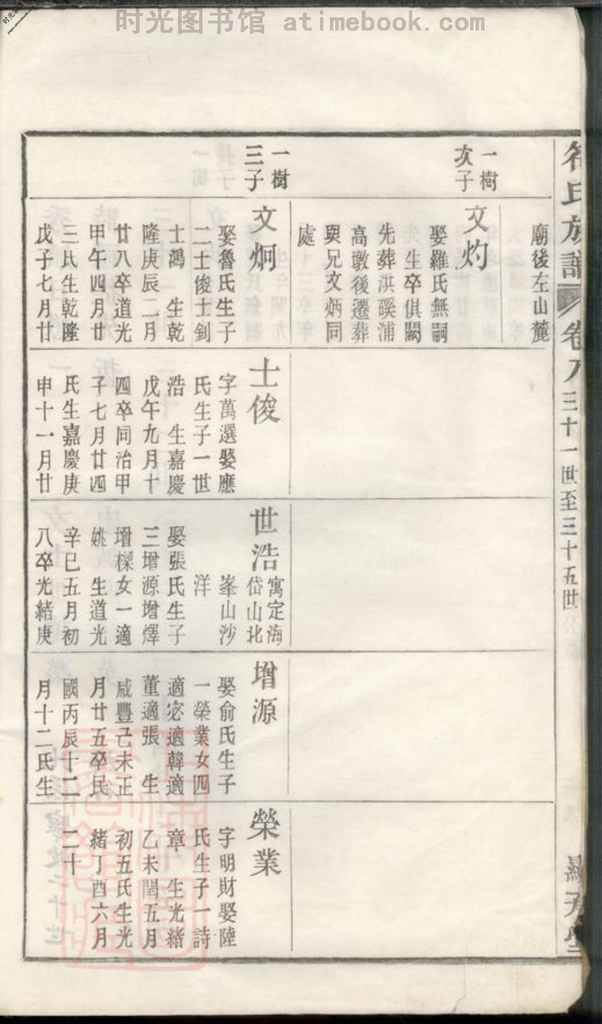 时光图书馆 atimebook.com
氏族譜
卷八
三十一世至三十五世
廟後左山麓
一樹
次子
文灼
娶羅氏無嗣
生卒俱闕
先葬洪䜫浦
高墩後遷葬
與兄文炳同
處
一樹
三子
文炯
娶魯氏生子
二士俊士釗
士鴻 生乾
隆庚辰二月
廿八卒道光
甲午四月廿
三氏生乾隆
戊子七月廿
士俊
字萬選娶應
氏生子一世
浩 生嘉慶
戊午九月十
四卒同治甲
子七月廿四
氏生嘉慶庚
申十一月廿
世浩
寓定海
岱山北
峯山沙
洋
娶張氏生子
三增源增燡
增樑女一適
姚 生道光
辛巳五月初
八卒光緒庚
增源
娶俞氏生子
一榮業女四
適宓適韓適
董適張 生
咸豐己未正
月廿五卒民
國丙辰十二
月十二氏生
榮業
字明財娶陸
氏生子一詩
章 生光緒
乙未閏五月
初五氏生光
緒丁酉六月
二十